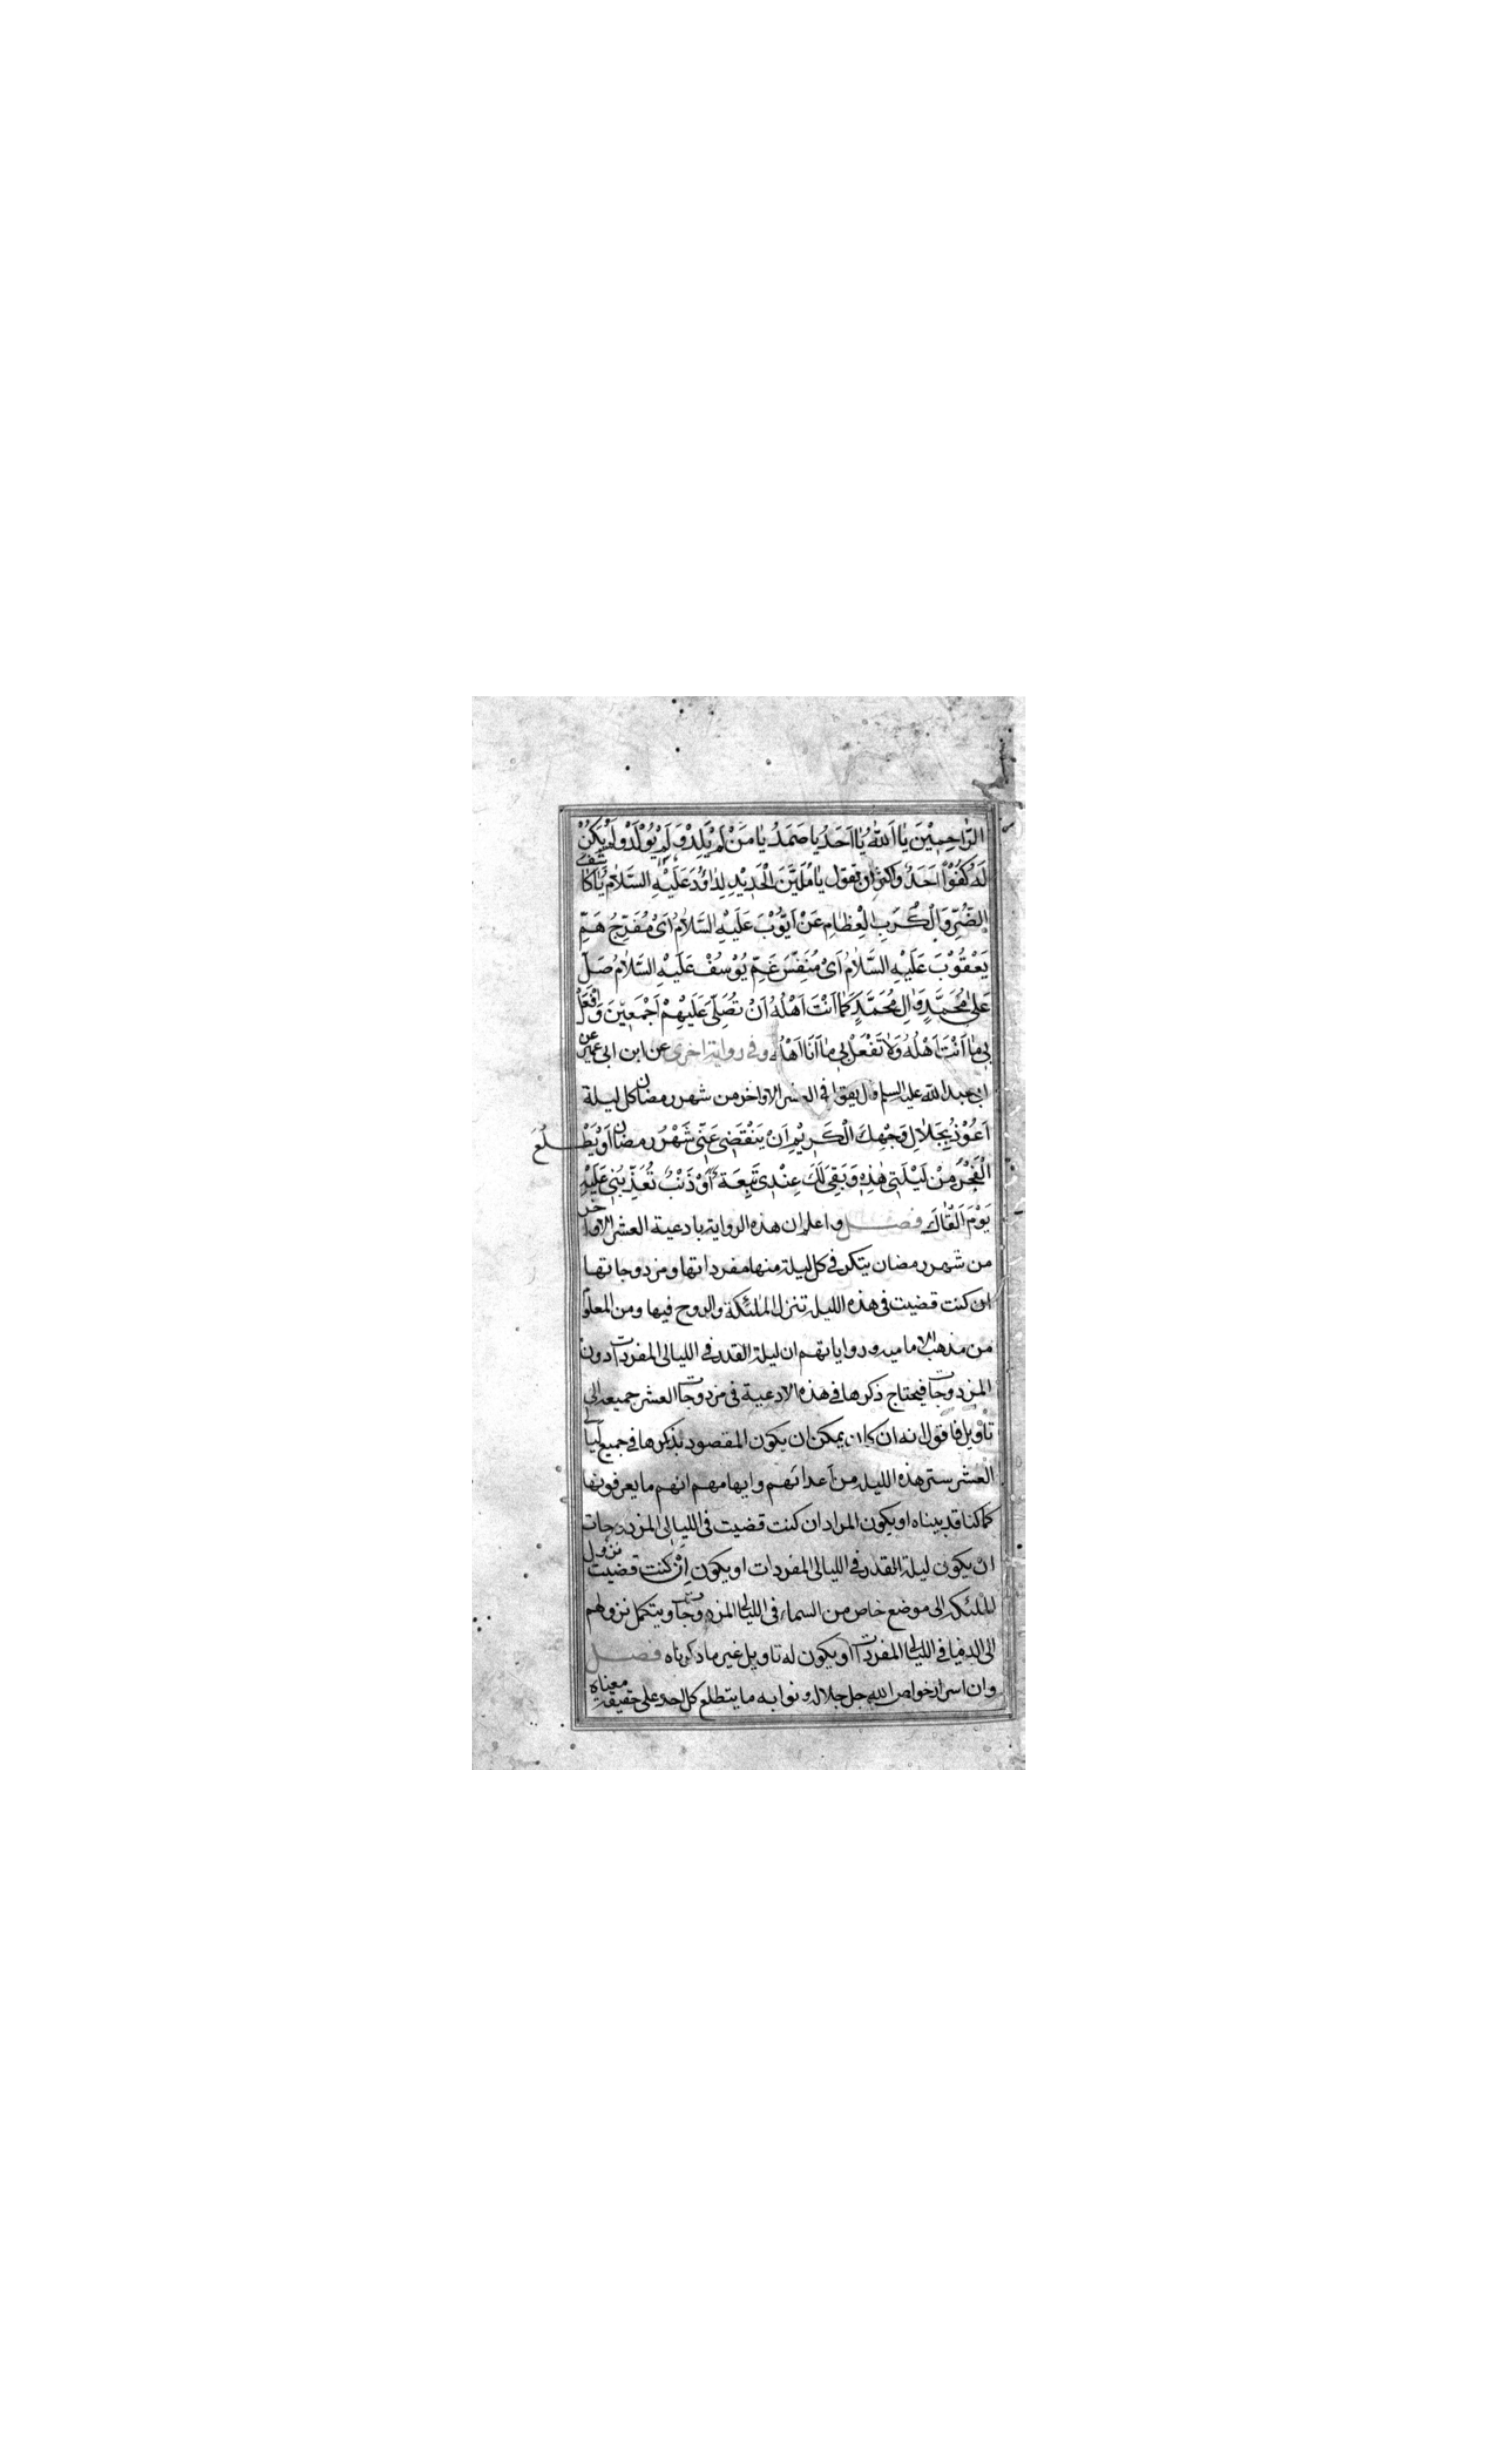 الرَّاحِمِيْنَ يَا اَللّٰهُ يَا اَحَدُ يَا صَمَدُ يَا مَنْ لَمْ يَلِدْ وَلَمْ يُوْلَدْ وَلَمْ يَكُنْ
لَهُ كُفُوًا اَحَدٌ واكثر ان تقول يَا مُلَيِّنَ الْحَدِيْدِ لِدَاوُدَ عَلَيْهِ السَّلَامُ يَا كَاشِفَ
الضُّرِّ وَالْكُرَبِ الْعِظَامِ عَنْ اَيُّوْبَ عَلَيْهِ السَّلَامُ اَىْ مُفَرِّجَ هَمِّ
يَعْقُوْبَ عَلَيْهِ السَّلَامُ اَىْ مُنَفِّسَ غَمِّ يُوْسُفَ عَلَيْهِ السَّلَامُ صَلِّ
عَلٰى مُحَمَّدٍ وَاٰلِ مُحَمَّدٍ كَمَا اَنْتَ اَهْلُهُ اَنْ تُصَلِّىَ عَلَيْهِمْ اَجْمَعِيْنَ وَافْعَلْ
بِى مَا اَنْتَ اَهْلُهُ وَلَا تَفْعَلْ بِى مَا اَنَا اَهْلُهُ وفى رواية اخرى عن ابن ابى عمير عن
ابى عبد الله عليه السلم قال يقول فى العشر الاواخر من شهر رمضان كل ليلة
اَعُوْذُ بِجَلَالِ وَجْهِكَ الْكَرِيْمِ اَنْ يَنْقَضِىَ عَنِّى شَهْرُ رمضان اَوْ يَطْلُعَ
الْفَجْرُ مِنْ لَيْلَتِى هٰذِهِ وَبَقِىَ لَكَ عِنْدِى تَبِعَةٌ اَوْ ذَنْبٌ تُعَذِّبُنِى عَلَيْهِ
يَوْمَ اَلْقَاكَ فصل واعلم ان هذه الرواية بادعية العشر الاواخر
من شهر رمضان يتكرر فى كل ليلة منها مفرداتها ومزدوجاتها
ان كنت قضيت فى هذه الليلة تنزل الملئكة والروح فيها ومن المعلوم
من مذهب الاماميه ورواياتهم ان ليلة القدر فى الليالى المفردات دون
المزدوجات فيحتاج ذكرها فى هذه الادعية فى مزدوجات العشر جميعه الى
تاويل فاقول انه ان كان يمكن ان يكون المقصود بذكرها فى جميع ليالى
العشر ستر هذه الليلة من اعدائهم وايهامهم انهم ما يعرفونها
كما كنا قد بيناه او يكون المراد ان كنت قضيت فى الليالى المزدوجات
ان يكون ليلة القدر فى الليالى المفردات او يكون اِنْ كنت قضيت نزول
الملئكة الى موضع خاص من السماء فى الليالى المزدوجات ويتكمل نزولهم
الى الدنيا فى الليالى المفردات او يكون له تاويل غير ما ذكرناه فصل
وان اسرار خواص الله جل جلاله ونوابه ما يتطلع كل احد على حقيقة معناه